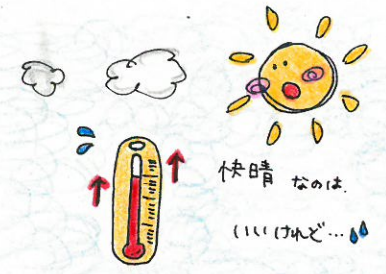 快晴 なのは、
いいけれど…